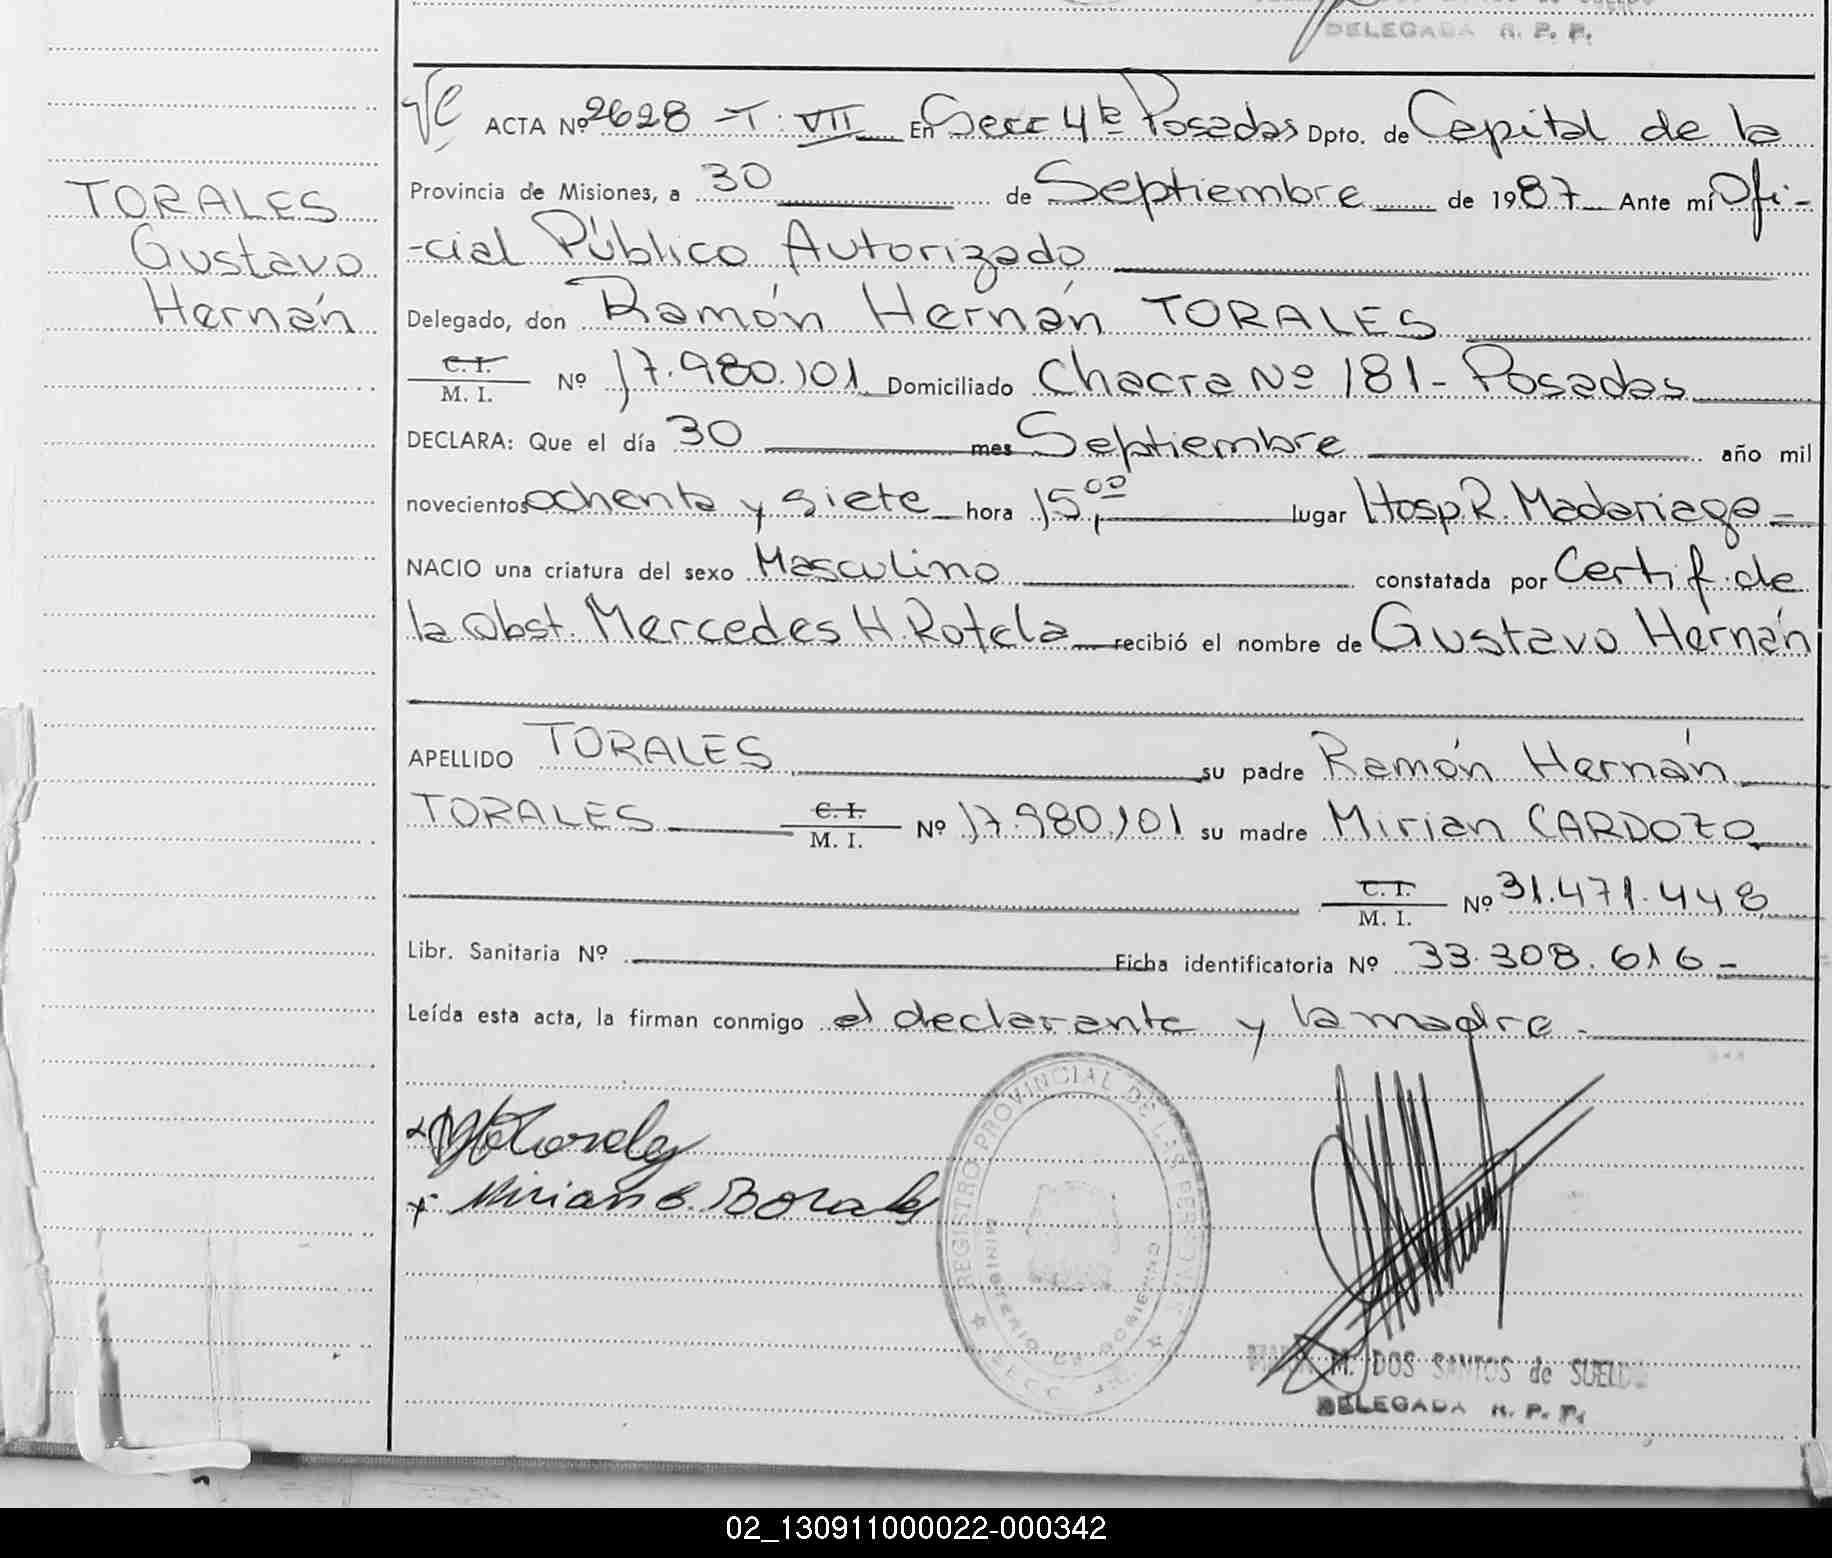 DELEGADA R. P. P.
ACTA Nº 2628 - T. VII En Secc 4ta Posadas Dpto. de Capital de la
Provincia de Misiones, a 30 de Septiembre de 1987 Ante mí Ofi-
TORALES
-cial Público Autorizado
Gustavo
Hernán
Delegado, don Ramón Hernán TORALES
C. I.
M. I. Nº 17.980.101 Domiciliado Chacra Nº 181 - Posadas
DECLARA: Que el día 30 mes Septiembre año mil
novecientos ochenta y siete hora 15,00 lugar Hosp R. Madariaga -
NACIO una criatura del sexo Masculino constatada por Certif. de
la Obst. Mercedes H. Rotela recibió el nombre de Gustavo Hernán
APELLIDO TORALES su padre Ramón Hernán
TORALES C. I. M. I. Nº 17.980.101 su madre Mirian CARDOZO
C. I.
M. I. Nº 31.471.448
Libr. Sanitaria Nº Ficha identificatoria Nº 33.308.616 -
Leída esta acta, la firman conmigo el declarante y la madre -
REGISTRO PROVINCIAL DE LAS PERSONAS
MINISTERIO DE GOBIERNO
Mirian
M. DOS SANTOS de SUELDO
DELEGADA R. P. P.
02_130911000022-000342